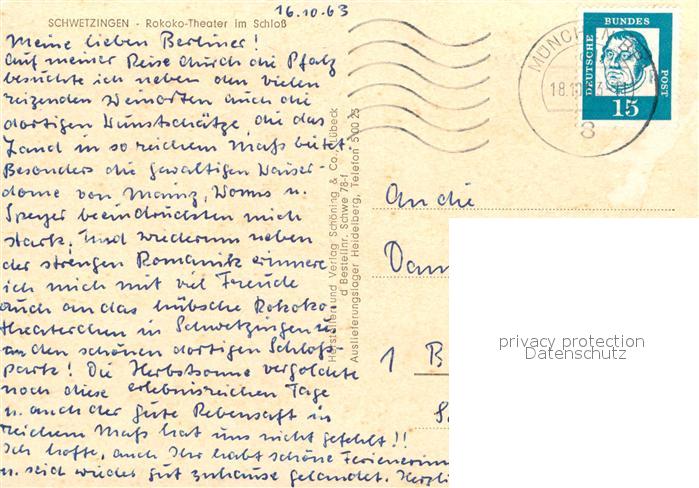 16.10.63
SCHWETZINGEN - Rokoko-Theater im Schloß
Meine lieben Berliner!
Auf meiner Reise durch die Pfalz
besuchte ich neben den vielen
reizenden Weinorten auch die
dortigen Kunstschätze, die das
Land in so reichem Maß bietet.
Besonders die gewaltigen Kaiser-
dome von Mainz, Worms u.
Speyer beeindruckten mich
stark. Und wiederum neben
der strengen Romanik erinnere
ich mich mit viel Freude
auch an das hübsche Rokoko-
theaterchen in Schwetzingen u.
an den schönen dortigen Schloß-
park! Die Herbstsonne vergoldete
noch diese erlebnisreichen Tage
u. auch der gute Rebensaft in
reichem Maß hat uns nicht gefehlt!!
Ich hoffe, auch Ihr habt schöne Ferienerinn
u. seid wieder gut zuhause gelandet. Herzli
Hersteller und Verlag Schöning & Co., Lübeck
d Bestellnr. Schwe 78-f
Auslieferungslager Heidelberg, Telefon 500 25
MÜNCHEN
18.10
8
DEUTSCHE
BUNDES
POST
15
An die
Dam
1 B
privacy protection
Datenschutz